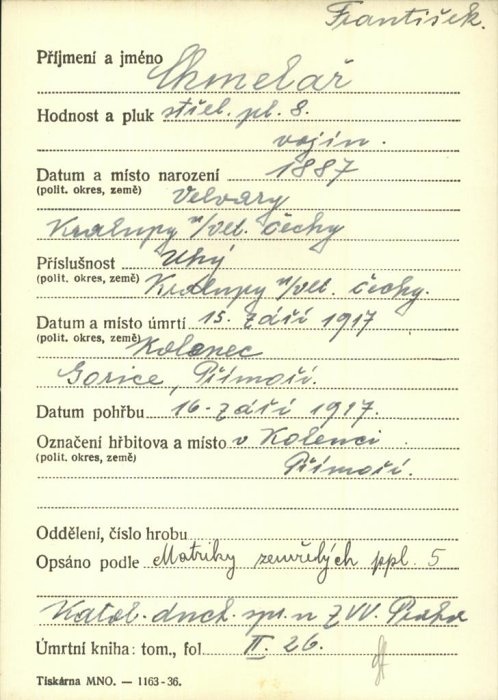 František.
Příjmení a jméno Chmelař
Hodnost a pluk střel. pl. 8.
vojín.
Datum a místo narození 1887
(polit. okres, země) Velvary
Kralupy n/vlt. čechy
Příslušnost Uhý
(polit. okres, země) Kralupy n/vlt. čechy.
Datum a místo úmrtí 15. září 1917
(polit. okres, země) Kolenec
Gorice, Přímoří.
Datum pohřbu 16. září 1917.
Označení hřbitova a místo v Kolenci
(polit. okres, země) Přímoří.
Oddělení, číslo hrobu
Opsáno podle Matriky zemřelých ppl. 5
Katol. duch. spr. u ZVV. Praha
Úmrtní kniha: tom., fol. II. 26.
Tiskárna MNO. — 1163-36.